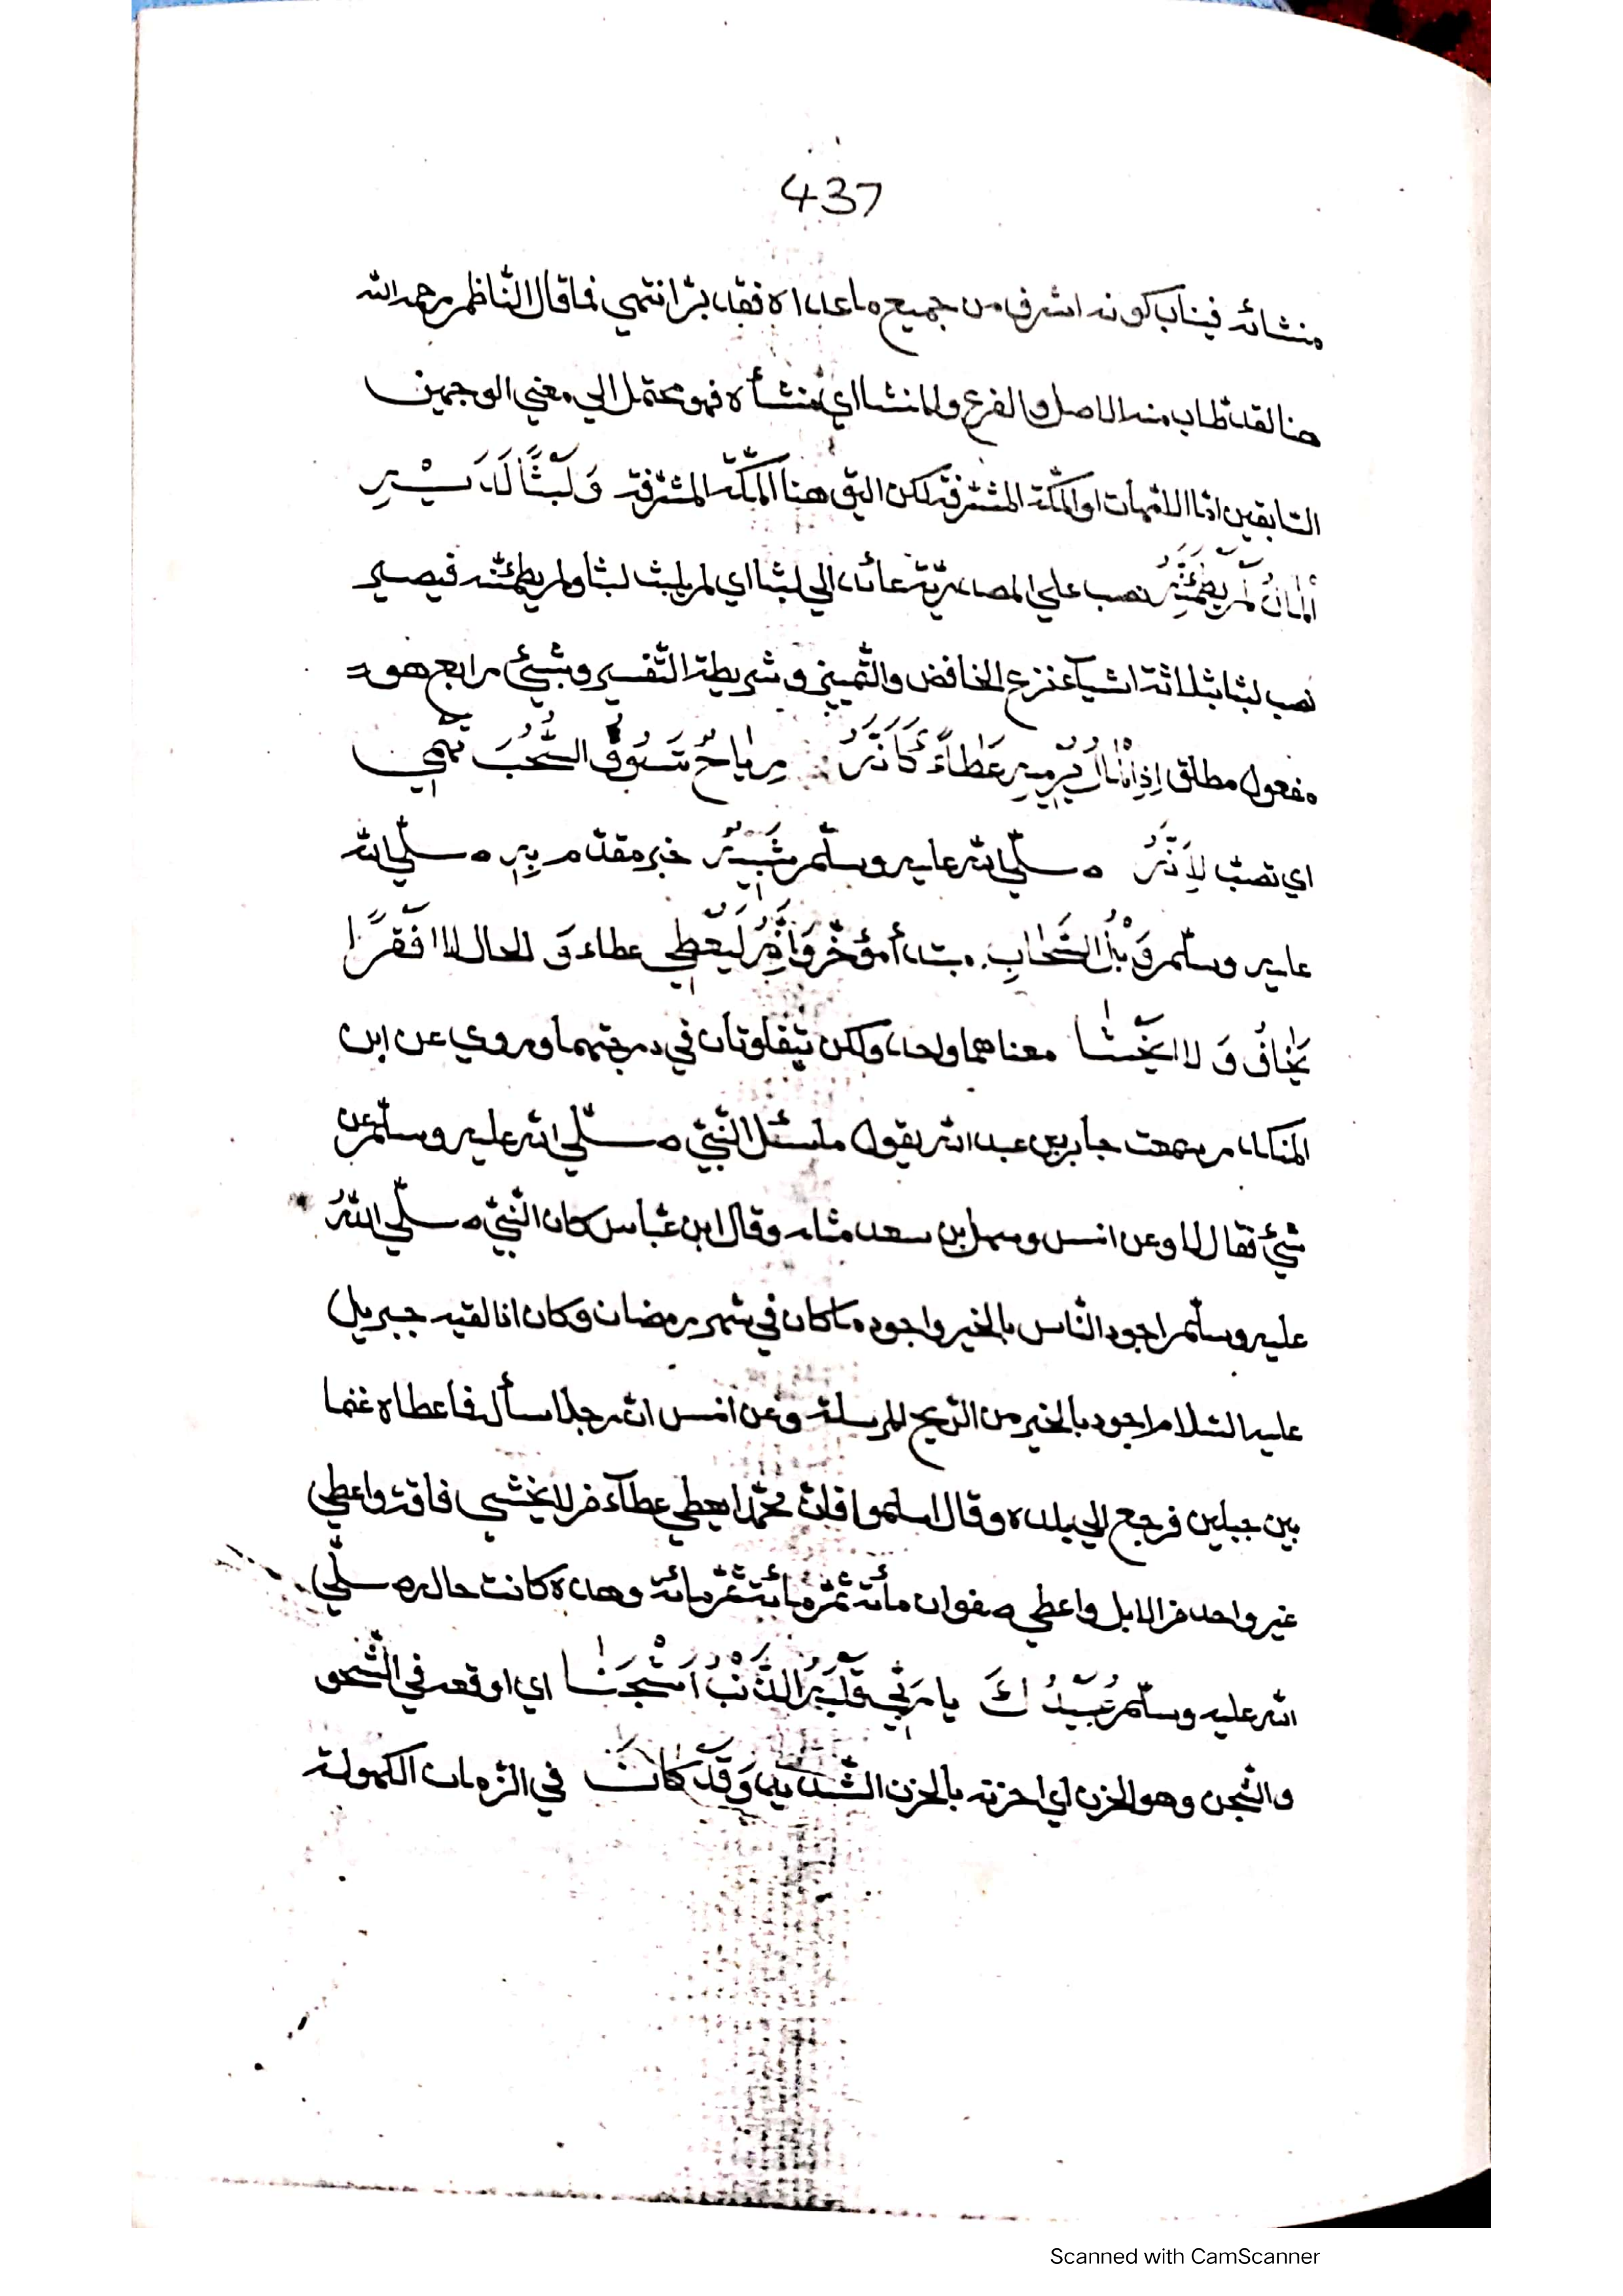 437
منشائه فيناب كونه اشرف من جميع ما عداه فقد برّ انتهي فما قال النّاظم رحمه الله
هنا لقد طاب منه الاصل والفرع والمنشا اي منشأه فهو محتمل الي معني الوجهين
السّابقين امّا الامّهات او المكّة المشرّفة لكن اليق هنا المكّة المشرّفة وَلَبْثًا لَدَيْسِيرِ
نصب علي المصدريّة عائد الي لبثا اي لم يلبث لبثا ولم يطمئنه فيصير
نصب لبثا بثلاثة اشيآء نزع الخافض والتّمييز وشريطة التّفسير وبشيئ رابع هو
مفعول مطلق عَطَاءً كَأَنَّهُ رِيَاحٌ تَسُوقُ السُّحْبَ تَهْمِي
اي تصبّ لِأَنَّهُ صلّي الله عليه وسلّم شَبِيهٌ خبر مقدّم بِهِ صلّي الله
عليه وسلّم وَبْلُ السَّحَابِ مبتدأ مؤخّر وَانَّهُ لَيُعْطِي عطاء وَ الحال لَا فَقْرًا
يَخَافُ وَلَا يَخْشَا معناهما واحد ولكن يتفاوتان في درجتهما وروي عن ابن
المنكدر سمعت جابر بن عبد الله يقول ما سئل النّبيّ صلّي الله عليه وسلّم عن
شيئ فقال لا وعن انس وسهل بن سعد مثله وقال ابن عبّاس كان النّبيّ صلّي اللهُ
عليه وسلّم اجود النّاس بالخير واجود ما كان في شهر رمضان وكان اذا لقيه جبريل
عليه السّلام اجود بالخير من الرّيح المرسلة وعن انس انّ رجلا سأله فاعطاه غنما
بين جبلين فرجع الي بلده وقال اسلموا فانّ محمّدا يعطي عطآء من لا يخشي فاقة واعطي
غير واحد من الابل واعطي صفوان مأئة ثمّ مأئة ثمّ مائة وهذه كانت حاله صلّي
الله عليه وسلّم عُبَيْدُكَ يا رَبِّي قَلْبَهُ الذَّنْبُ اَشْجَنَا اي اوقعه في الشّجو
والشّجن وهو الحزن اي احزنه بالحزن الشّديد وَقَدْ كَانَ في الزّمان الكهولة
Scanned with CamScanner